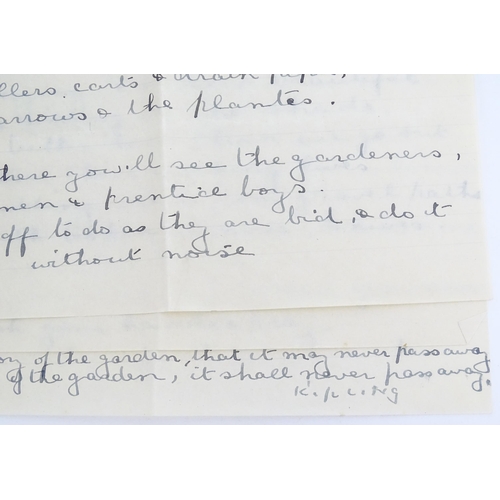 llers, carts & drain pipes,
arrows & the plantes.
here you'll see the gardeners,
men & prentice boys.
off to do as they are bid, & do it
without noise
ory of the garden, that it may never pass away
of the garden, it shall never pass away.
Kipling